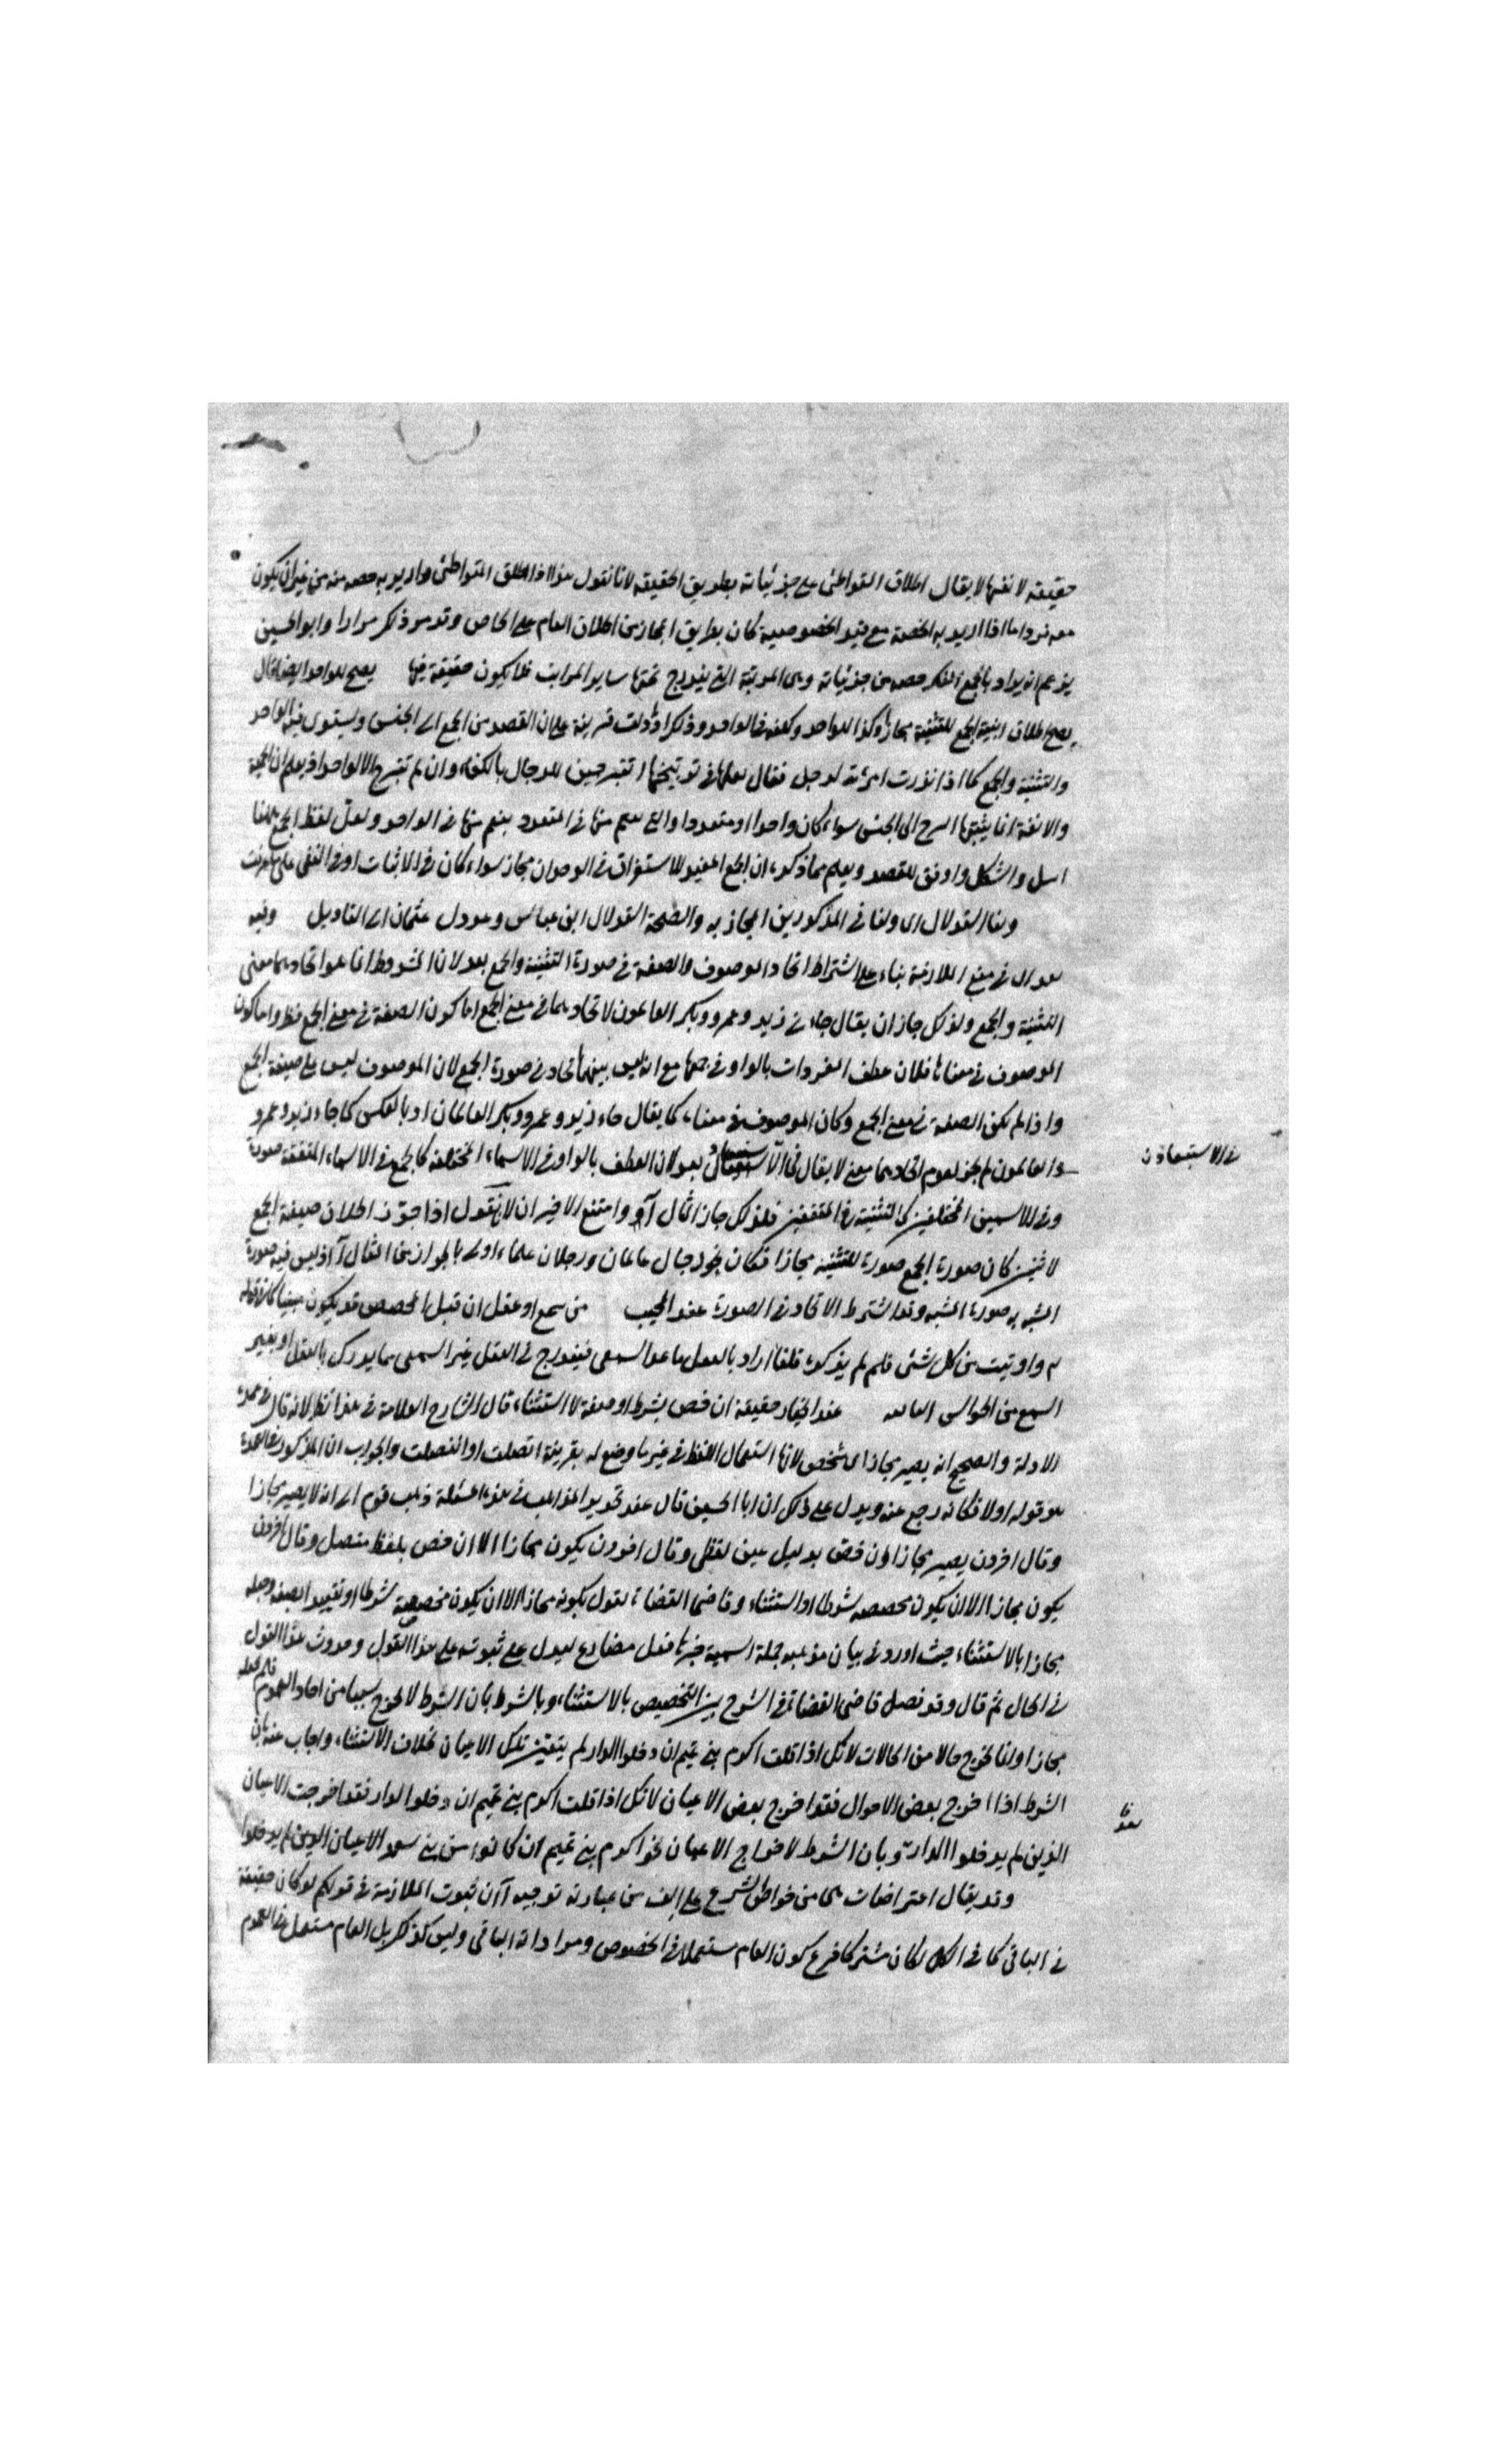 حقيقة لانتفائها لا يقال اطلاق المتواطئ على جزئياته بطريق الحقيقة لانا نقول هذا اذا اطلق المتواطئ واريد به حصة منه من غير ان يكون
معه اما اذا اريد به الحصة مع قيد الخصوصية كان بطريق المجاز من اطلاق العام على الخاص وقد مر ذكره مرارا وابو الحسين
يزعم انه يراد بالجمع المنكر حصة من جزئياته وهى المرتبة التى يندرج تحتها ساير المراتب فلا يكون حقيقة فيها يصح للواحد ايضا قال
يصح اطلاق ابنية الجمع للتثنية مجازا وكذا للواحد وذلك اذا دلت قرينة على ان القصد من الجمع الى الجنس ويستوى فيه الواحد
والتثنية والجمع كما اذا برزت امرئة لرجل فقال بعلها فى توبيخها اتتبرجين للرجال بالكفاء وان لم تتبرج الا لواحد اذ يعلم ان الحمية
والانفة انما يثيرها التبرج الى الجنس سواء كان واحدا او متعددا والتى منها فى المتعدد منها فى الواحد ولعل لفظ الجمع ههنا
اسل واشكل واوفق للقصد ويعلم مما ذكره ان الجمع المفيد للاستغراق فى الوحدان مجاز سواء كان فى الاثبات او فى النفى على ما عرفت
ولنا القولان اى ولنا فى المذكورين المجازية والصحة القولان ابن عباس وعدول عثمان الى التاويل وفيه
بعد اى فى منع الملازمة بناء على اشتراط اتحاد الموصوف والصفة فى صورة التثنية والجمع بعد لان المشروط انما هو اتحادهما معنى
التثنية والجمع ولذلك جاز ان يقال جاءنى زيد وعمرو وبكر العالمون لاتحادهما فى معنى الجمع اما كون الصفة فى معنى الجمع فظ واما كون
الموصوف فى معناها فلان عطف المفردات بالواو فى جمعها مع انه ليس بينهما اتحاد فى صورة الجمع لان الموصوف ليس على صيغة الجمع
واذا لم تكن الصفة فى معنى الجمع وكان الموصوف فى معناه كما يقال جاء زيد وعمرو وبكر العالمان او بالعكس كما جاء زيد وعمرو
والعالمون لم يجز لعدم اتحادهما معنى لا يقال فى الاستبعاد بعد لان العطف بالواو فى الاسماء المختلفة كالجمع فى الاسماء المتفقة صورة
فى الاستبعاد
وفى الاسمين المختلفين كالتثنية فى المتفقين فلذلك جاز المثال آ وامتنع الاخيران لانا نقول اذا جوز اطلاق صيغة الجمع
لاثنين كان صورة الجمع صورة للتثنية مجازا فكان نحو رجال عالمان ورجلان علماء اولى بالجواز من المثال آ اذ ليس فيه صورة
المشبه به صورة المشبه وقد اشترط الاتحاد فى الصورة عند المجيب من سمع او عقل ان قيل المخصص قد يكون حسيا كما فى قوله
تع واوتيت من كل شئ فلم لم يذكره قلنا اراد بالعقل ما عدا السمعى فيندرج فى العقل غير السمعى مما يدرك بالعقل او بغير
السمع من الحواس عند المختار حقيقة ان خص بشرط او صفة لا استثناء قال الشارح العلامة فى هذا نظر لانه قال فى عمدة
الادلة والصحيح انه يصير مجازا باى شئ خص لانها استعمال اللفظ فى غير ما وضع له بقرينة اتصلت او انفصلت والجواب ان المذكور فى العمدة
هو قوله اولا فكانه رجع عنه ويدل على ذلك ان ابا الحسين قال عند تحرير المذاهب فى هذه المسئلة ذهب قوم الى انه لا يصير مجازا
وقال اخرون يصير مجازا ان خص بدليل غير لفظى وقال اخرون يكون مجازا الا ان خص بلفظ متصل وقال اخرون
يكون مجازا الا ان يكون مخصصه شرطا او استثناء وقاضى القضاة يقول بكونه مجازا الا ان يكون مخصصه شرطا او تقييدا بصفة وجعله
مجازا بالاستثناء حيث اورد فى بيان مذهبه جملة اسمية خبرها فعل مضارع ليدل على ثبوته على هذا القول وحدوث هذا القول
فى الحال ثم قال وقد فصل قاضى القضاة فى الشرح بين التخصيص بالاستثناء وبالشرط بان الشرط لا يخرج شيئا من احاد العموم فلم يجعله
مجازا وانما يخرج حالا من الحالات لانك اذا قلت اكرم بنى تميم ان دخلوا الدار لم يتعين تلك الاعيان بخلاف الاستثناء واجاب عنه بان
الشرط اذا اخرج بعض الاحوال فقد اخرج بعض الاعيان لانك اذا قلت اكرم بنى تميم ان دخلوا الدار فقد اخرجت الاعيان
الذين لم يدخلوا الدار وبان الشرط لاخراج الاعيان نحو اكرم بنى تميم ان كانوا من بنى سعد الاعيان الذين لم يدخلوا
وقد يقال اعتراضات هى من خواص الشرح على الف من عبارته توجيه آ ان ثبوت الملازمة فى قولكم لو كان حقيقة
فى الباقى كما فى الكل لكان مشتركا فرع كون العام مستعملا فى الخصوص ومرادا به الباقى وليس كذلك بل العام مستعمل فى العموم